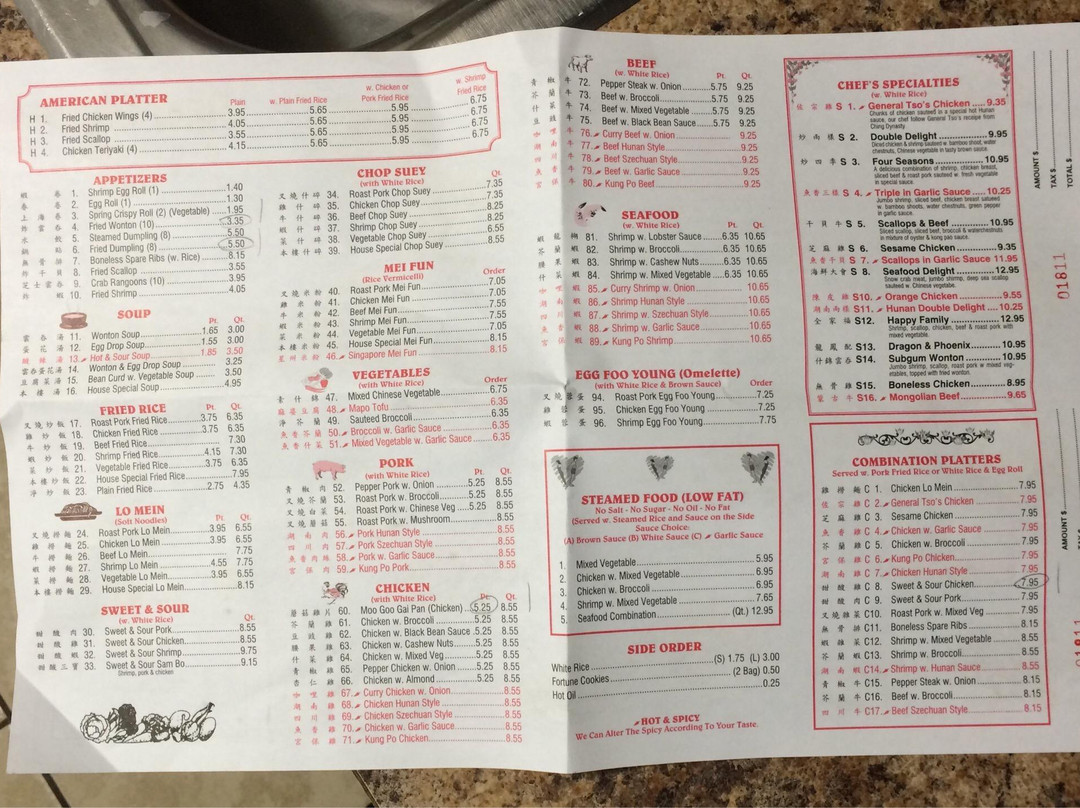 AMERICAN PLATTER
Plain w. Plain Fried Rice w. Chicken or Pork Fried Rice w. Shrimp Fried Rice
H 1. Fried Chicken Wings (4) 3.95 5.65 5.95 6.75
H 2. Fried Shrimp 4.05 5.65 5.95 6.75
H 3. Fried Scallop 3.55 5.65 5.95 6.75
H 4. Chicken Teriyaki (4) 4.15 5.65 5.95 6.75
APPETIZERS
蝦卷 1. Shrimp Egg Roll (1) 1.40
春卷 2. Egg Roll (1) 1.30
上海卷 3. Spring Crispy Roll (2) (Vegetable) 1.95
炸雲吞 4. Fried Wonton (10) 3.35
水餃 5. Steamed Dumpling (8) 5.50
鍋貼 6. Fried Dumpling (8) 5.50
無骨排 7. Boneless Spare Ribs (w. Rice) 8.15
炸干貝 8. Fried Scallop 3.55
芝士雲吞 9. Crab Rangoons (10) 3.95
炸蝦 10. Fried Shrimp 4.05
SOUP
Pt. Qt.
雲吞湯 11. Wonton Soup 1.65 3.00
蛋花湯 12. Egg Drop Soup 1.55 3.00
酸辣湯 13. Hot & Sour Soup 1.85 3.50
雲吞蛋花湯 14. Wonton & Egg Drop Soup 3.25
豆腐菜湯 15. Bean Curd w. Vegetable Soup 3.50
本樓湯 16. House Special Soup 4.95
FRIED RICE
Pt. Qt.
叉燒炒飯 17. Roast Pork Fried Rice 3.75 6.35
雞炒飯 18. Chicken Fried Rice 3.75 6.35
牛炒飯 19. Beef Fried Rice 7.30
蝦炒飯 20. Shrimp Fried Rice 4.15 7.30
菜炒飯 21. Vegetable Fried Rice 3.75 6.35
本樓炒飯 22. House Special Fried Rice 7.95
淨炒飯 23. Plain Fried Rice 2.75 4.35
LO MEIN
(Soft Noodles)
Pt. Qt.
叉燒撈麵 24. Roast Pork Lo Mein 3.95 6.55
雞撈麵 25. Chicken Lo Mein 3.95 6.55
牛撈麵 26. Beef Lo Mein 7.75
蝦撈麵 27. Shrimp Lo Mein 4.55 7.75
菜撈麵 28. Vegetable Lo Mein 3.95 6.55
本樓撈麵 29. House Special Lo Mein 8.15
SWEET & SOUR
(w. White Rice)
Qt.
甜酸肉 30. Sweet & Sour Pork 8.55
甜酸雞 31. Sweet & Sour Chicken 8.55
甜酸蝦 32. Sweet & Sour Shrimp 9.75
甜酸三寶 33. Sweet & Sour Sam Bo 9.15
Shrimp, pork & chicken
CHOP SUEY
(with White Rice)
Qt.
叉燒什碎 34. Roast Pork Chop Suey 7.35
雞什碎 35. Chicken Chop Suey 7.35
牛什碎 36. Beef Chop Suey 8.25
蝦什碎 37. Shrimp Chop Suey 8.25
菜什碎 38. Vegetable Chop Suey 7.35
本樓什碎 39. House Special Chop Suey 8.55
MEI FUN
(Rice Vermicelli)
Order
叉燒米粉 40. Roast Pork Mei Fun 7.05
雞米粉 41. Chicken Mei Fun 7.05
牛米粉 42. Beef Mei Fun 7.55
蝦米粉 43. Shrimp Mei Fun 7.55
菜米粉 44. Vegetable Mei Fun 7.05
本樓米粉 45. House Special Mei Fun 8.15
星洲米粉 46. Singapore Mei Fun 8.15
VEGETABLES
(with White Rice)
Order
青什錦 47. Mixed Chinese Vegetable 6.75
麻婆豆腐 48. Mapo Tofu 6.35
淨芥蘭 49. Sauteed Broccoli 6.35
魚香芥蘭 50. Broccoli w. Garlic Sauce 6.35
魚香什菜 51. Mixed Vegetable w. Garlic Sauce 6.35
PORK
(with White Rice)
Pt. Qt.
青椒肉 52. Pepper Pork w. Onion 5.25 8.55
叉燒芥蘭 53. Roast Pork w. Broccoli 5.25 8.55
叉燒白菜 54. Roast Pork w. Chinese Veg 5.25 8.55
叉燒蘑菇 55. Roast Pork w. Mushroom 8.55
湖南肉 56. Pork Hunan Style 8.55
四川肉 57. Pork Szechuan Style 8.55
魚香肉絲 58. Pork w. Garlic Sauce 8.55
宮保肉 59. Kung Po Pork 8.55
CHICKEN
(with White Rice)
Pt. Qt.
蘑菇雞片 60. Moo Goo Gai Pan (Chicken) 5.25 8.55
芥蘭雞 61. Chicken w. Broccoli 5.25 8.55
豆豉雞 62. Chicken w. Black Bean Sauce 5.25 8.55
腰果雞 63. Chicken w. Cashew Nuts 5.25 8.55
什菜雞 64. Chicken w. Mixed Veg 5.25 8.55
青椒雞 65. Pepper Chicken w. Onion 5.25 8.55
杏仁雞 66. Chicken w. Almond 5.25 8.55
咖喱雞 67. Curry Chicken w. Onion 8.55
湖南雞 68. Chicken Hunan Style 8.55
四川雞 69. Chicken Szechuan Style 8.55
魚香雞 70. Chicken w. Garlic Sauce 8.55
宮保雞 71. Kung Po Chicken 8.55
BEEF
(w. White Rice)
Pt. Qt.
青椒牛 72. Pepper Steak w. Onion 5.75 9.25
芥蘭牛 73. Beef w. Broccoli 5.75 9.25
什菜牛 74. Beef w. Mixed Vegetable 5.75 9.25
豆豉牛 75. Beef w. Black Bean Sauce 5.75 9.25
咖喱牛 76. Curry Beef w. Onion 9.25
湖南牛 77. Beef Hunan Style 9.25
四川牛 78. Beef Szechuan Style 9.25
魚香牛 79. Beef w. Garlic Sauce 9.25
宮保牛 80. Kung Po Beef 9.25
SEAFOOD
(w. White Rice)
Pt. Qt.
蝦龍糊 81. Shrimp w. Lobster Sauce 6.35 10.65
芥蘭蝦 82. Shrimp w. Broccoli 6.35 10.65
腰果蝦 83. Shrimp w. Cashew Nuts 6.35 10.65
什菜蝦 84. Shrimp w. Mixed Vegetable 6.35 10.65
咖喱蝦 85. Curry Shrimp w. Onion 10.65
湖南蝦 86. Shrimp Hunan Style 10.65
四川蝦 87. Shrimp w. Szechuan Style 10.65
魚香蝦 88. Shrimp w. Garlic Sauce 10.65
宮保蝦 89. Kung Po Shrimp 10.65
EGG FOO YOUNG (Omelette)
(with White Rice & Brown Sauce)
Order
叉燒蓉蛋 94. Roast Pork Egg Foo Young 7.25
雞蓉蛋 95. Chicken Egg Foo Young 7.25
蝦蓉蛋 96. Shrimp Egg Foo Young 7.75
STEAMED FOOD (LOW FAT)
No Salt - No Sugar - No Oil - No Fat
(Served w. Steamed Rice and Sauce on the Side
Sauce Choice:
(A) Brown Sauce (B) White Sauce (C) Garlic Sauce
1. Mixed Vegetable 5.95
2. Chicken w. Mixed Vegetable 6.95
3. Chicken w. Broccoli 6.95
4. Shrimp w. Mixed Vegetable 7.65
5. Seafood Combination (Qt.) 12.95
SIDE ORDER
White Rice (S) 1.75 (L) 3.00
Fortune Cookies (2 Bag) 0.50
Hot Oil 0.25
HOT & SPICY
We Can Alter The Spicy According To Your Taste.
CHEF'S SPECIALTIES
(w. White Rice)
佐宗雞 S 1. General Tso's Chicken 9.35
Chunks of chicken sauteed in a special hot Hunan sauce, our chef follow General Tso's receipe from Ching Dynasty
炒兩樣 S 2. Double Delight 9.95
Diced chicken & shrimp sauteed w. bamboo shoot, water chestnuts, Chinese vegetable in tasty brown sauce.
炒四季 S 3. Four Seasons 10.95
A delicious combination of shrimp, chicken breast, sliced beef & roast pork sauteed w. fresh vegetable in special sauce.
魚香三樣 S 4. Triple in Garlic Sauce 10.25
Jumbo shrimp, sliced beef, chicken breast sauteed w. bamboo shoots, water chestnuts, green pepper in garlic sauce.
干貝牛 S 5. Scallops & Beef 10.95
Sliced scallop, sliced beef, broccoli & waterchestnuts in mixture of oyster & kung pao sauce.
芝麻雞 S 6. Sesame Chicken 9.35
魚香干貝 S 7. Scallops in Garlic Sauce 11.95
海鮮大會 S 8. Seafood Delight 12.95
Snow crab meat, jumbo shrimp, deep sea scallop sauteed w. Chinese vegetable.
陳皮雞 S10. Orange Chicken 9.55
湖南兩樣 S11. Hunan Double Delight 10.25
全家福 S12. Happy Family 12.95
Shrimp, scallop, chicken, beef & roast pork with mixed vegetable.
龍鳳配 S13. Dragon & Phoenix 10.95
什錦雲吞 S14. Subgum Wonton 10.95
Jumbo shrimp, scallop, roast pork w mixed vegetables, topped with fried wonton.
無骨雞 S15. Boneless Chicken 8.95
蒙古牛 S16. Mongolian Beef 9.65
COMBINATION PLATTERS
Served w. Pork Fried Rice or White Rice & Egg Roll
雞撈麵 C 1. Chicken Lo Mein 7.95
佐宗雞 C 2. General Tso's Chicken 7.95
芝麻雞 C 3. Sesame Chicken 7.95
魚香雞 C 4. Chicken w. Garlic Sauce 7.95
芥蘭雞 C 5. Chicken w. Broccoli 7.95
宮保雞 C 6. Kung Po Chicken 7.95
湖南雞 C 7. Chicken Hunan Style 7.95
甜酸雞 C 8. Sweet & Sour Chicken 7.95
甜酸肉 C 9. Sweet & Sour Pork 7.95
叉燒雜菜 C10. Roast Pork w. Mixed Veg 7.95
無骨排 C11. Boneless Spare Ribs 8.15
什菜蝦 C12. Shrimp w. Mixed Vegetable 8.55
芥蘭蝦 C13. Shrimp w. Broccoli 8.55
湖南蝦 C14. Shrimp w. Hunan Sauce 8.55
青椒牛 C15. Pepper Steak w. Onion 8.15
芥蘭牛 C16. Beef w. Broccoli 8.15
四川牛 C17. Beef Szechuan Style 8.15
AMOUNT $
TAX $
TOTAL $
01811
AMOUNT $
01811